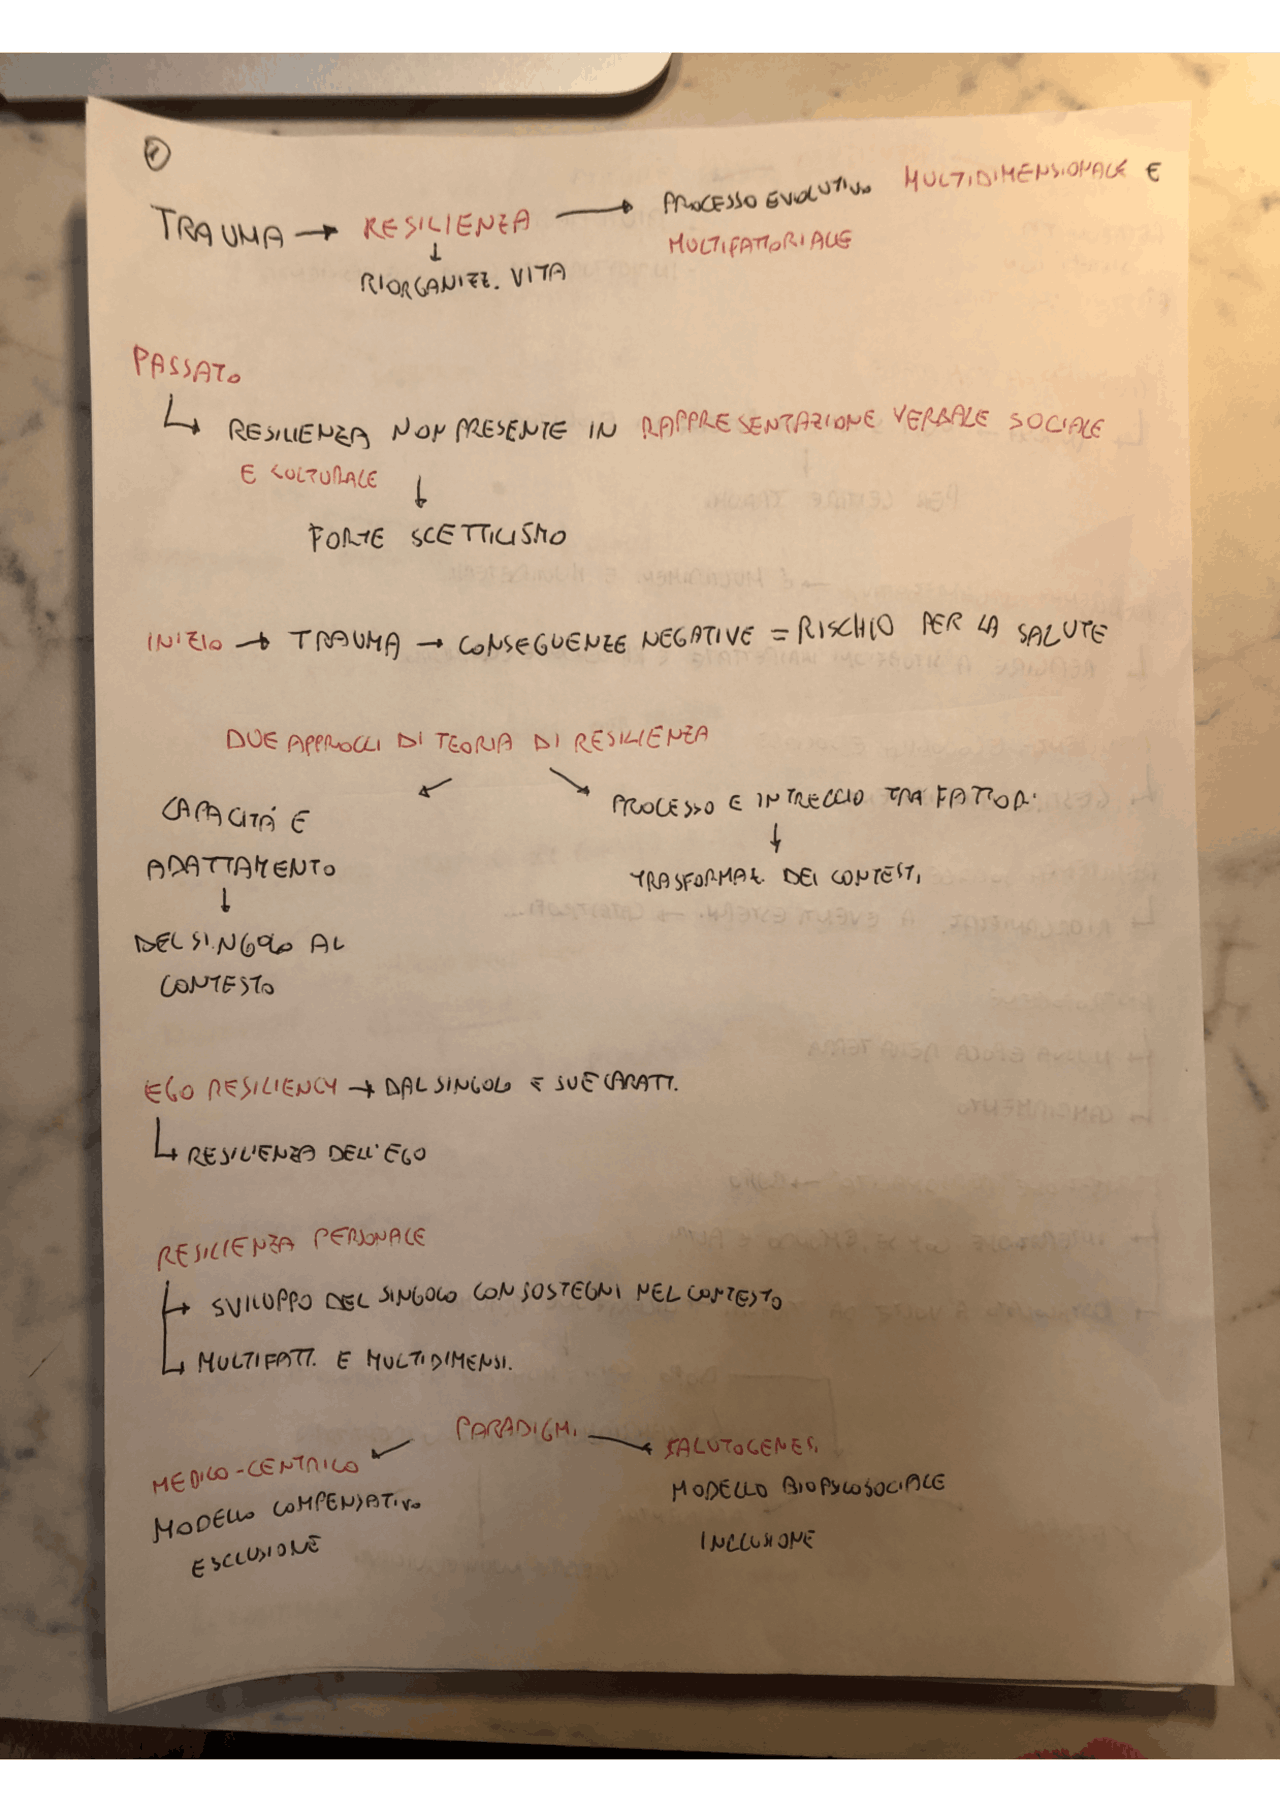 1
TRAUMA → RESILIENZA → PROCESSO EVOLUTIVO MULTIDIMENSIONALE E
MULTIFATTORIALE
↓
RIORGANIZZ. VITA
PASSATO
↳ RESILIENZA NON PRESENTE IN RAPPRESENTAZIONE VERBALE SOCIALE
E CULTURALE ↓
FORTE SCETTICISMO
INIZIO → TRAUMA → CONSEGUENZE NEGATIVE = RISCHIO PER LA SALUTE
DUE APPROCCI DI TEORIA DI RESILIENZA
↙ ↘
CAPACITÁ E
ADATTAMENTO
↓
DEL SINGOLO AL
CONTESTO
PROCESSO E INTRECCIO TRA FATTORI
↓
TRASFORMAZ. DEI CONTESTI
EGO RESILIENCY → DAL SINGOLO E SUE CARATT.
↳ RESILIENZA DELL'EGO
RESILIENZA PERSONALE
↳ SVILUPPO DEL SINGOLO CON SOSTEGNI NEL CONTESTO
↳ MULTIFATT. E MULTIDIMENSI.
PARADIGMI
↙ ↘
MEDICO-CENTRICO
MODELLO COMPENSATIVO
ESCLUSIONE
SALUTOGENESI
MODELLO BIOPSICOSOCIALE
INCLUSIONE